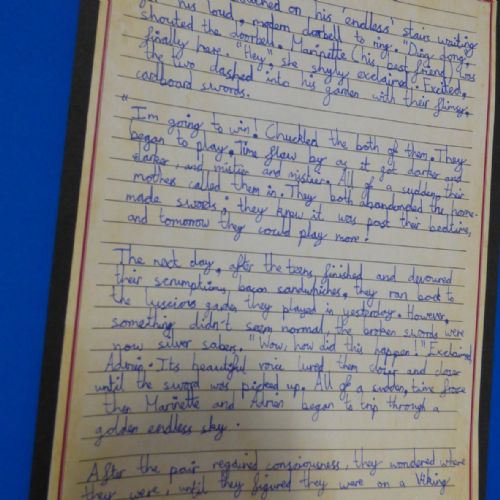 on his 'endless' stair waiting
for his loud, modern doorbell to ring. "Ding dong,"
shouted the doorbell. Marinette (his best friend) was
finally here. "Hey", she shyly exclaimed. Excited,
the two dashed into his garden with their flimsy,
cardboard swords.
"I'm going to win! Chuckled the both of them. They
began to play. Time flew by as it got darker and
darker, and mistier and mistier. All of a sudden, their
mothers called them in. They both abandonded the home-
made swords; they knew it was past their bedtime,
and tomorrow they could play more.
The next day, after the teens finished and devoured
their scrumptious bacon sandwhiches, they ran back to
the luscious garden they played in yesterday. However,
something didn't seem normal, the broken swords were
now silver sabers. "Wow, how did this happen!" Exclaimed
Adrien. Its beautiful voice lured them closer and closer
until the sword was picked up. All of a sudden, time froze
then Marinette and Adrien began to trip through a
golden endless sky.
After the pair regained consciousness, they wondered where
they were, until they figured they were on a Viking